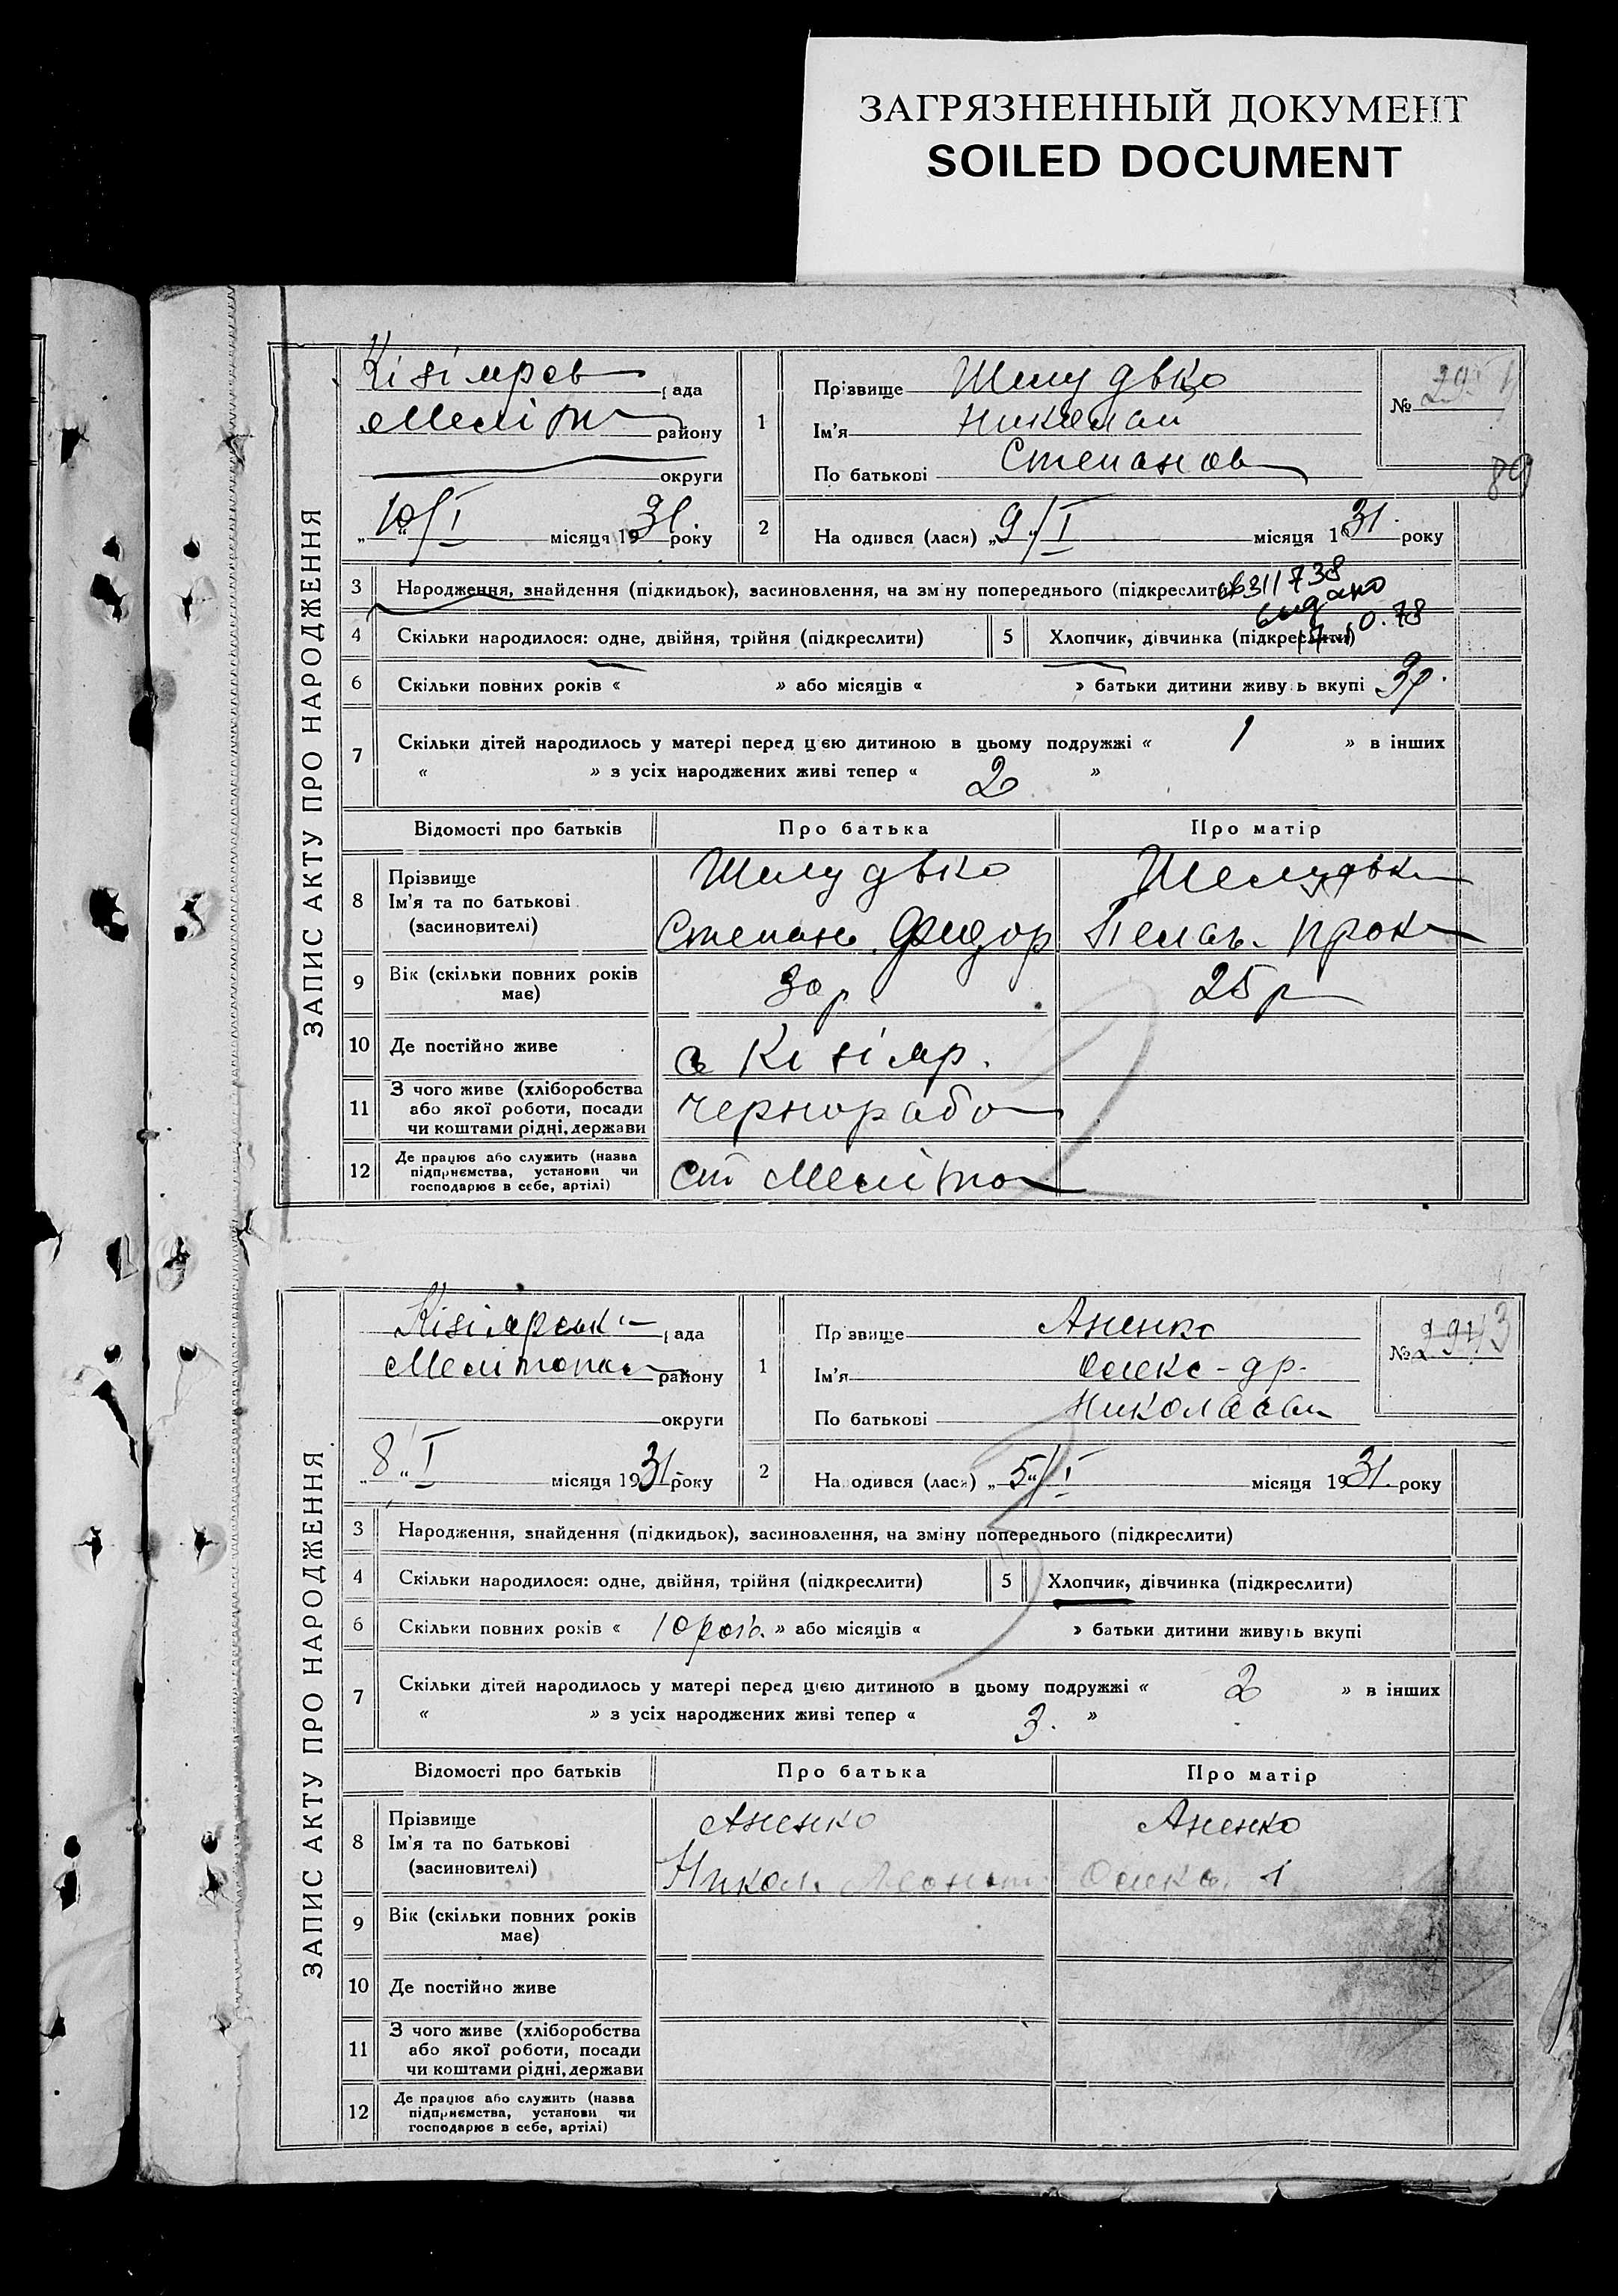 ЗАГРЯЗНЕННЫЙ ДОКУМЕНТ
SOILED DOCUMENT
ЗАПИС АКТУ ПРО НАРОДЖЕННЯ
рада
Меліт району
округи
„10“/I місяця 1931 року
1
Прізвище Шелудько
Ім'я Николай
По батькові Степанов
№
89
2 Народився (лася) „9“/I місяця 1931. року
3 Народження, знайдення (підкидьок), засиновлення, на зміну попереднього (підкреслити)
311738
видано
4 Скільки народилося: одне, двійня, трійня (підкреслити) 5 Хлопчик, дівчинка (підкреслити)
6 Скільки повних років « » або місяців « » батьки дитини живуть вкупі 3р.
7 Скільки дітей народилось у матері перед цією дитиною в цьому подружжі « 1 » в інших
« » з усіх народжених живі тепер « 2 »
Відомості про батьків Про батька Про матір
8 Прізвище
Ім'я та по батькові
(засиновителі)
Шелудько
Степан Федор
Шелудьк
Пелаг. Прок
9 Вік (скільки повних років має) 30 р. 25 р
10 Де постійно живе с Кізіяр.
11 З чого живе (хліборобства
або якої роботи, посади
чи коштами рідні, держави
чернорабо
12 Де працює або служить (назва
підприємства, установи чи
господарює в себе, артілі)
ст Меліто
ЗАПИС АКТУ ПРО НАРОДЖЕННЯ
Кізіярськ рада
Мелітопол району
округи
„8“ I місяця 1931 року
1
Прізвище Аненко
Ім'я Олекс-др.
По батькові Николаев
№ 2943
2 Народився (лася) „5“/I місяця 1931. року
3 Народження, знайдення (підкидьок), засиновлення, на зміну попереднього (підкреслити)
4 Скільки народилося: одне, двійня, трійня (підкреслити) 5 Хлопчик, дівчинка (підкреслити)
6 Скільки повних років « 10 рок. » або місяців « » батьки дитини живуть вкупі
7 Скільки дітей народилось у матері перед цією дитиною в цьому подружжі « 2 » в інших
« » з усіх народжених живі тепер « 3. »
Відомості про батьків Про батька Про матір
8 Прізвище
Ім'я та по батькові
(засиновителі)
Аненко
Никол. Леонт.
Аненко
Олекс.
9 Вік (скільки повних років має)
10 Де постійно живе
11 З чого живе (хліборобства
або якої роботи, посади
чи коштами рідні, держави
12 Де працює або служить (назва
підприємства, установи чи
господарює в себе, артілі)